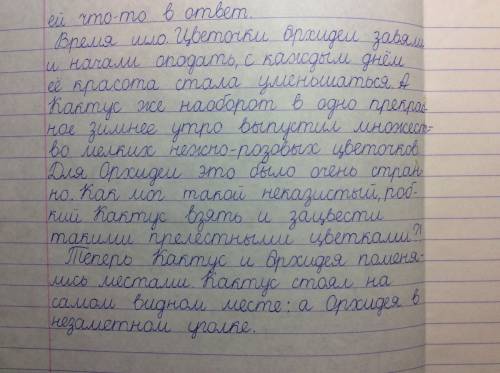 ей что-то в ответ.
Время шло. Цветочки Орхидеи завяли
и начали оподать, с каждым днём
её красота стала уменьшаться. А
Кактус же наоборот в одно прекрас-
ное зимнее утро выпустил множест-
во мелких нежно-розовых цветочков.
Для Орхидеи это было очень стран-
но. Как мог такой неказистый, роб-
кий Кактус взять и зацвести
такими прелестными цветками?!
Теперь Кактус и Орхидея поменя-
лись местами. Кактус стоял на
самом видном месте: а Орхидея в
незаметном уголке.